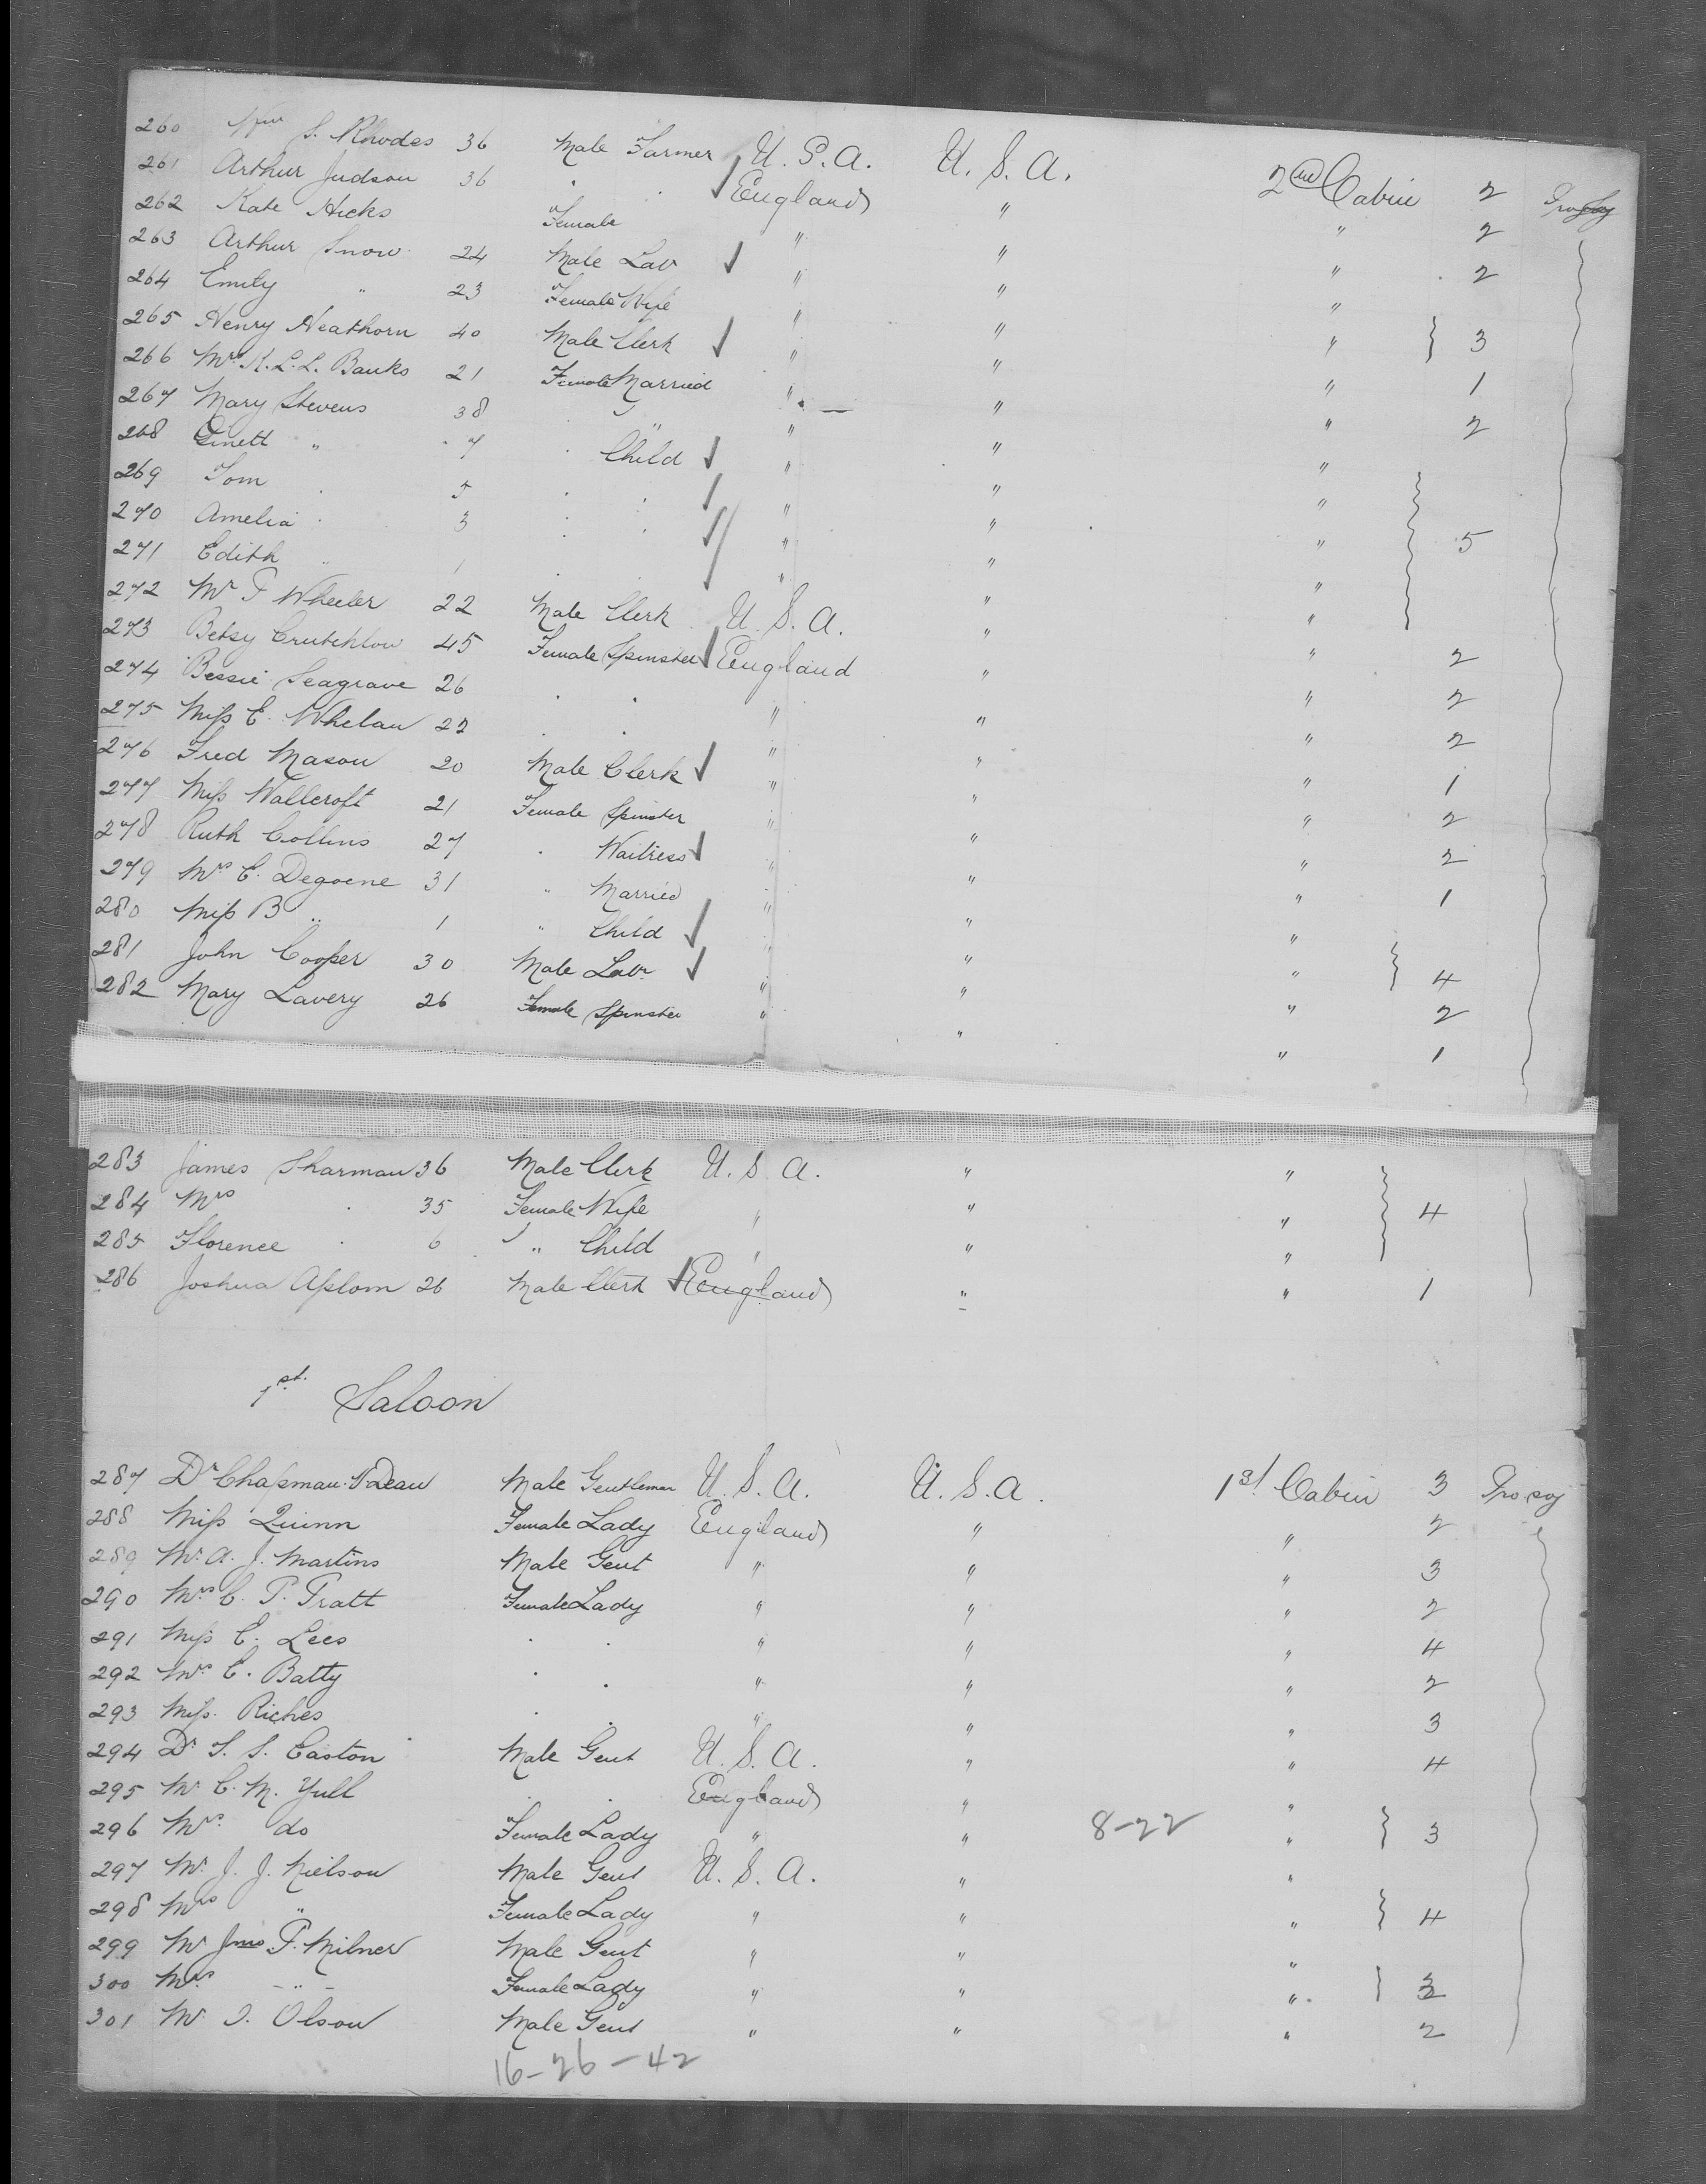 260 Wm S. Rhodes 36 Male Farmer U.S.A. U.S.A. 2nd Cabin 2
261 Arthur Judson 36 " " England " " 2
262 Kate Hicks Female " " " 2
263 Arthur Snow 24 Male Lab " " "
264 Emily " 23 Female Wife " " " 3
265 Henry Heathorn 40 Male Clerk " " " 1
266 Mrs K.L.L. Banks 21 Female Married " " " 2
267 Mary Stevens 38 " " " " "
268 " 7 " Child " " "
269 Tom " 5 " " " " " 5
270 Amelia " 3 " " " " "
271 Edith " 1 " " " " "
272 Mr T Wheeler 22 Male Clerk U.S.A. " " 2
273 Betsy Crutchlow 45 Female Spinster England " " 2
274 Bessie Seagrave 26 " " " " " 2
275 Miss E. Whelan 22 " " " " " 1
276 Fred Mason 20 Male Clerk " " " 2
277 Miss Wallcroft 21 Female Spinster " " " 2
278 Ruth Collins 27 " Waitress " " " 1
279 Mrs C. Degoene 31 " Married " " "
280 Miss B " 1 " Child " " " 4
281 John Cooper 30 Male Labr " " " 2
282 Mary Lavery 26 Female Spinster " " " 1
283 James Sharman 36 Male Clerk U.S.A. " "
284 Mrs " 35 Female Wife " " " 4
285 Florence " 6 " Child " " "
286 Joshua Asslom 26 Male Clerk England " " 1
1st. Saloon
287 Dr Chapman Male Gentleman U.S.A. U.S.A. 1st Cabin 3
288 Miss Quinn Female Lady England " " 2
289 Mr. A. J. Martins Male Gent " " " 3
290 Mrs C. P. Pratt Female Lady " " " 2
291 Miss E. Lees " " " " " 4
292 Mrs. C. Batty " " " " " 2
293 Miss. Riches " " " " " 3
294 Dr S. S. Easton Male Gent U.S.A. " " 4
295 Mr. C. M. Yull " " England " "
296 Mrs. do Female Lady " " 8-22 " 3
297 Mr. J. J. Nielson Male Gent U.S.A. " "
298 Mrs " Female Lady " " " 4
299 Mr Jno P. Milner Male Gent " " "
300 Mrs. - " - Female Lady " " " 3
301 Mr. I. Olson Male Gent " " " 2
16-26-42